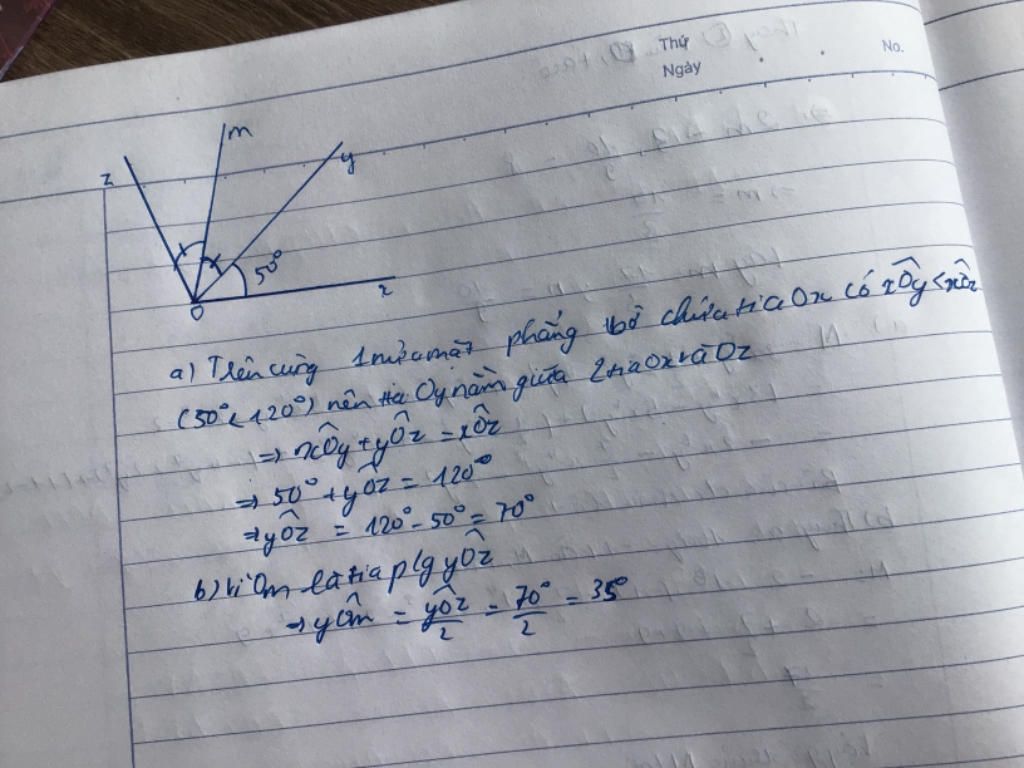 Thứ
No.
Ngày
z
m
y
50°
x
O
a) Trên cùng 1 nửa mặt phẳng bờ chứa tia Ox có xÔy < xÔz
(50° < 120°) nên tia Oy nằm giữa 2 tia Ox và Oz
=> xÔy + yÔz = xÔz
=> 50° + yÔz = 120°
=> yÔz = 120° - 50° = 70°
b) Vì Om là tia p/g yÔz
=> yÔm = yÔz/2 = 70°/2 = 35°